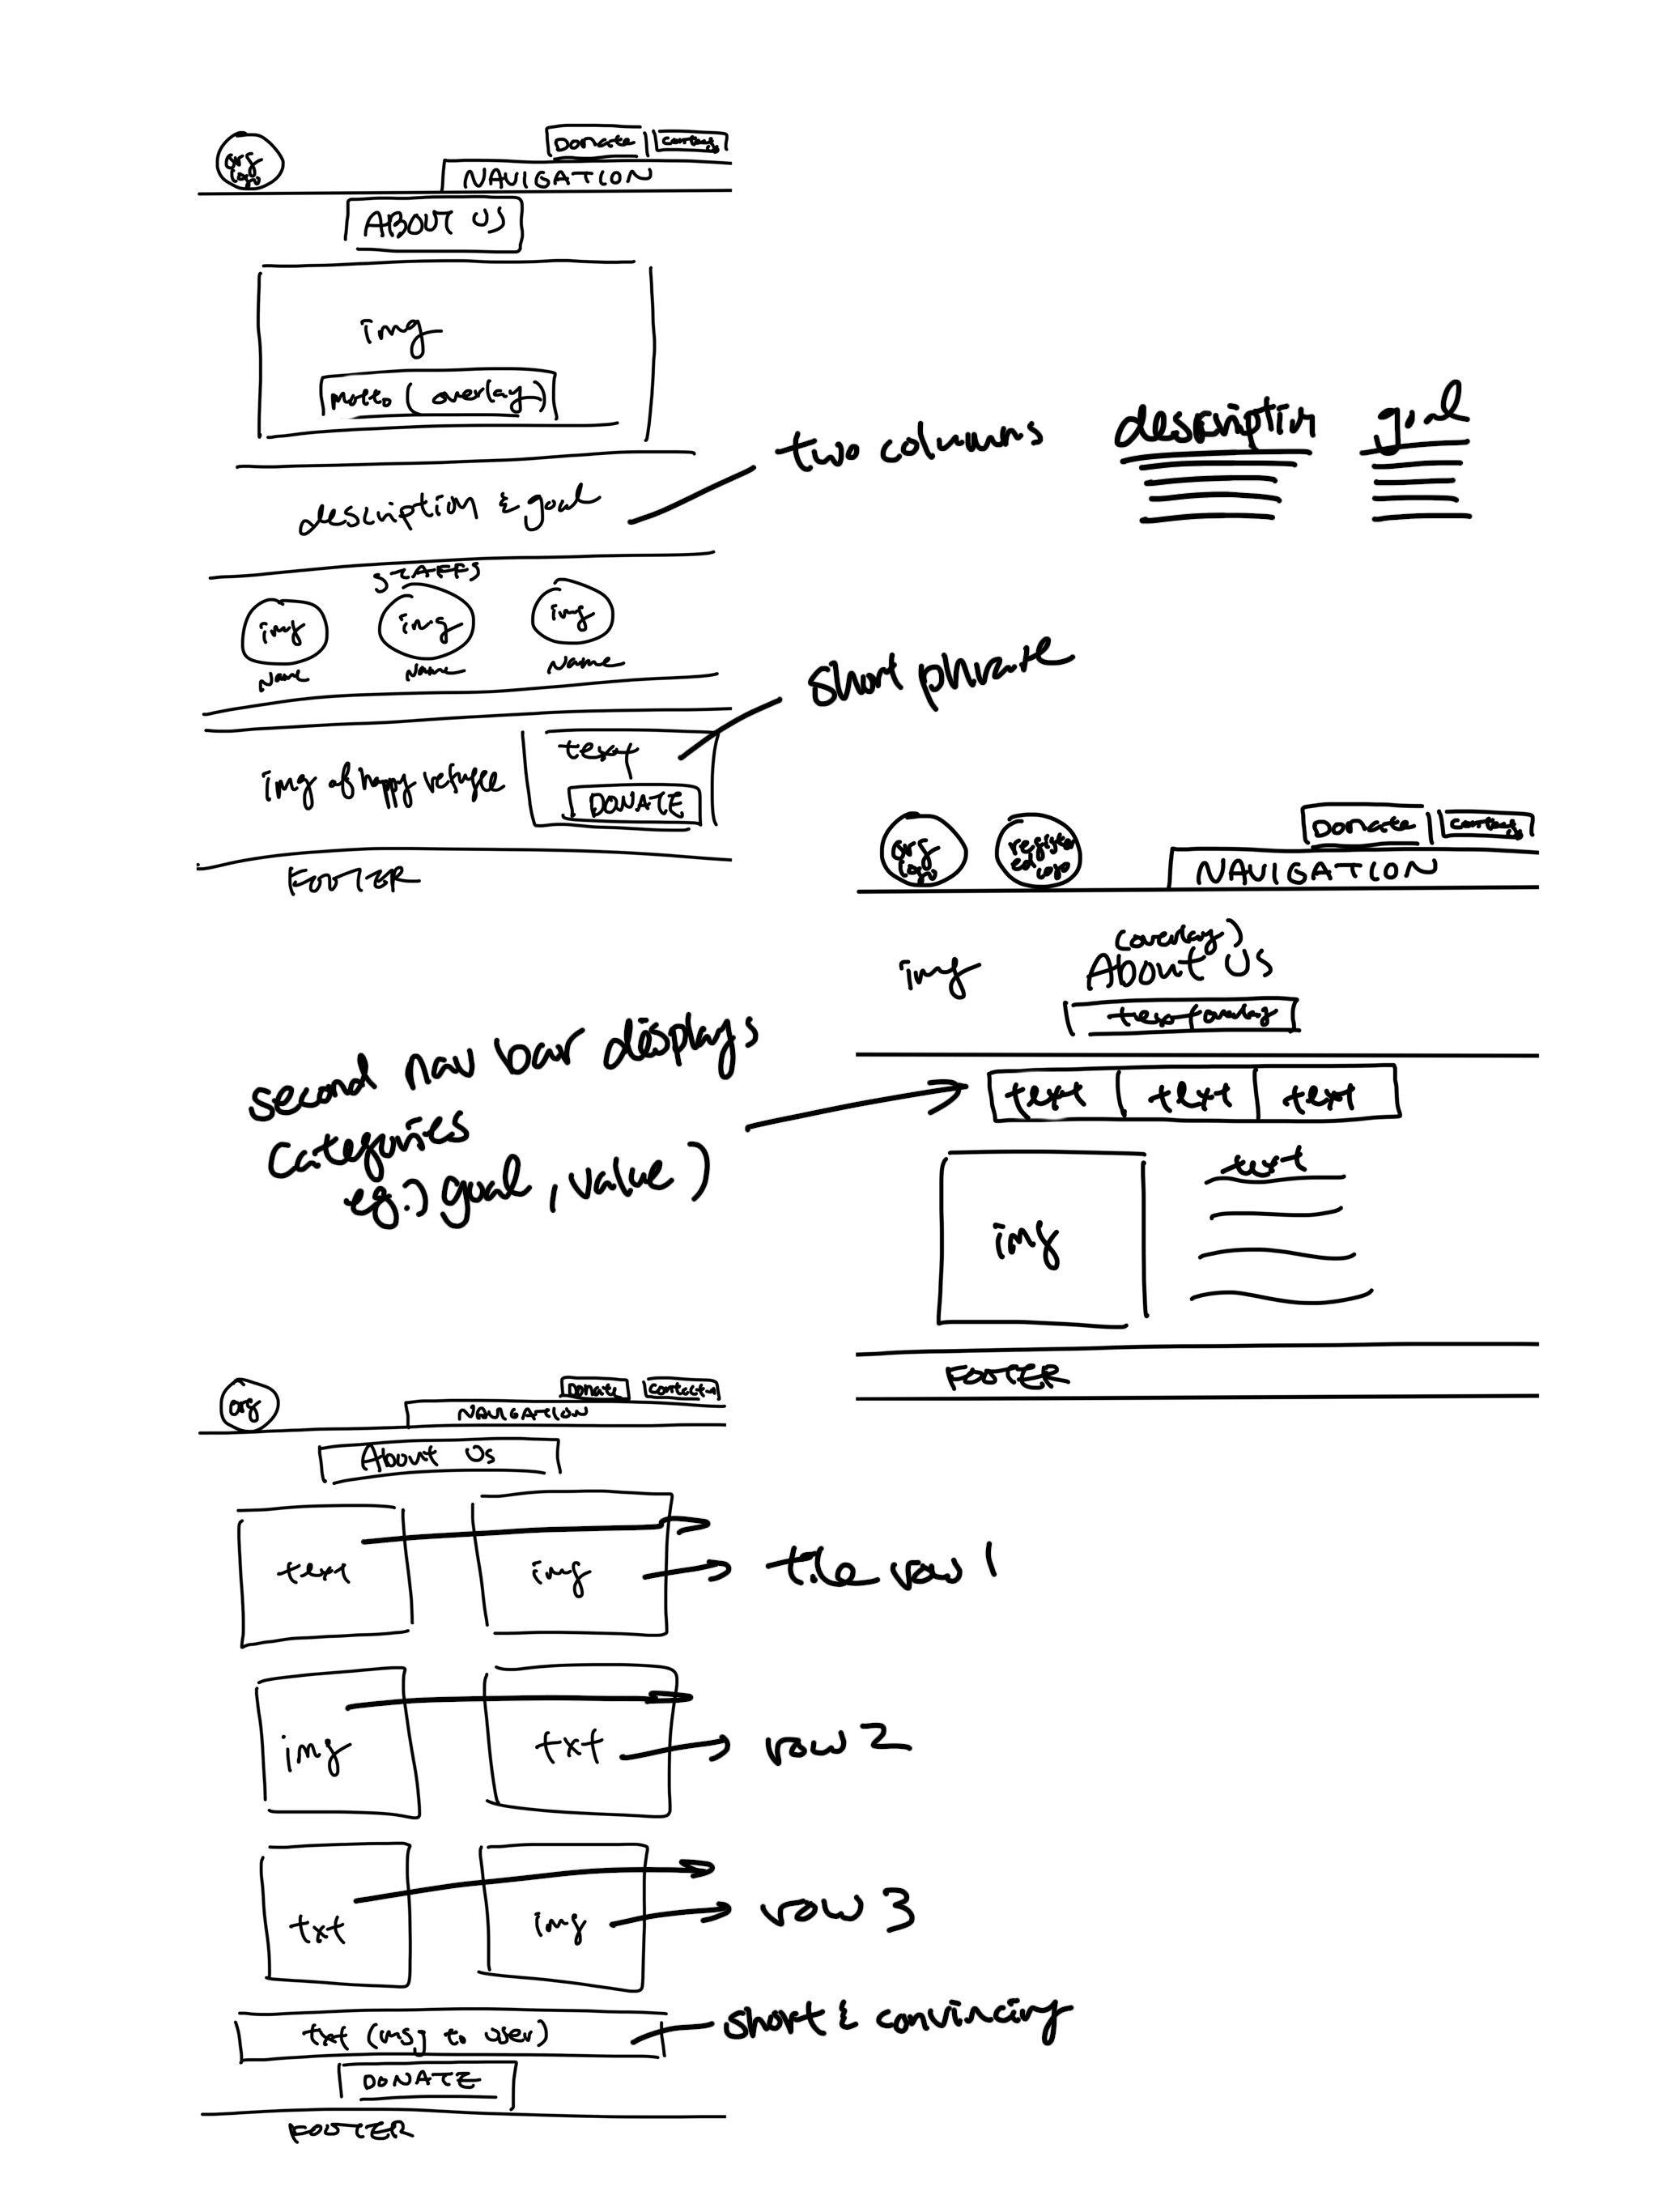 org
logo
Donate
contact
NAVIGATION
ABOUT US
img
motto (overlay)
description & goal
two columns
description
goal
STAFFS
img
img
img
Name
Name
Name
short phrase
img of happy refugee
text
DONATE
FOOTER
org
logo
register
ed
logo
Donate
contact
NAVIGATION
img
(overlay)
About Us
text overlay
second nav bar displays
categories
eg.) goal, value)
text
text
text
img
text
FOOTER
org
Donate
Contact
NAVIGATION
About Us
text
img
tile row 1
img
txt
row 2
txt
img
row 3
txt (msg to user)
short & convincing
DONATE
FOOTER